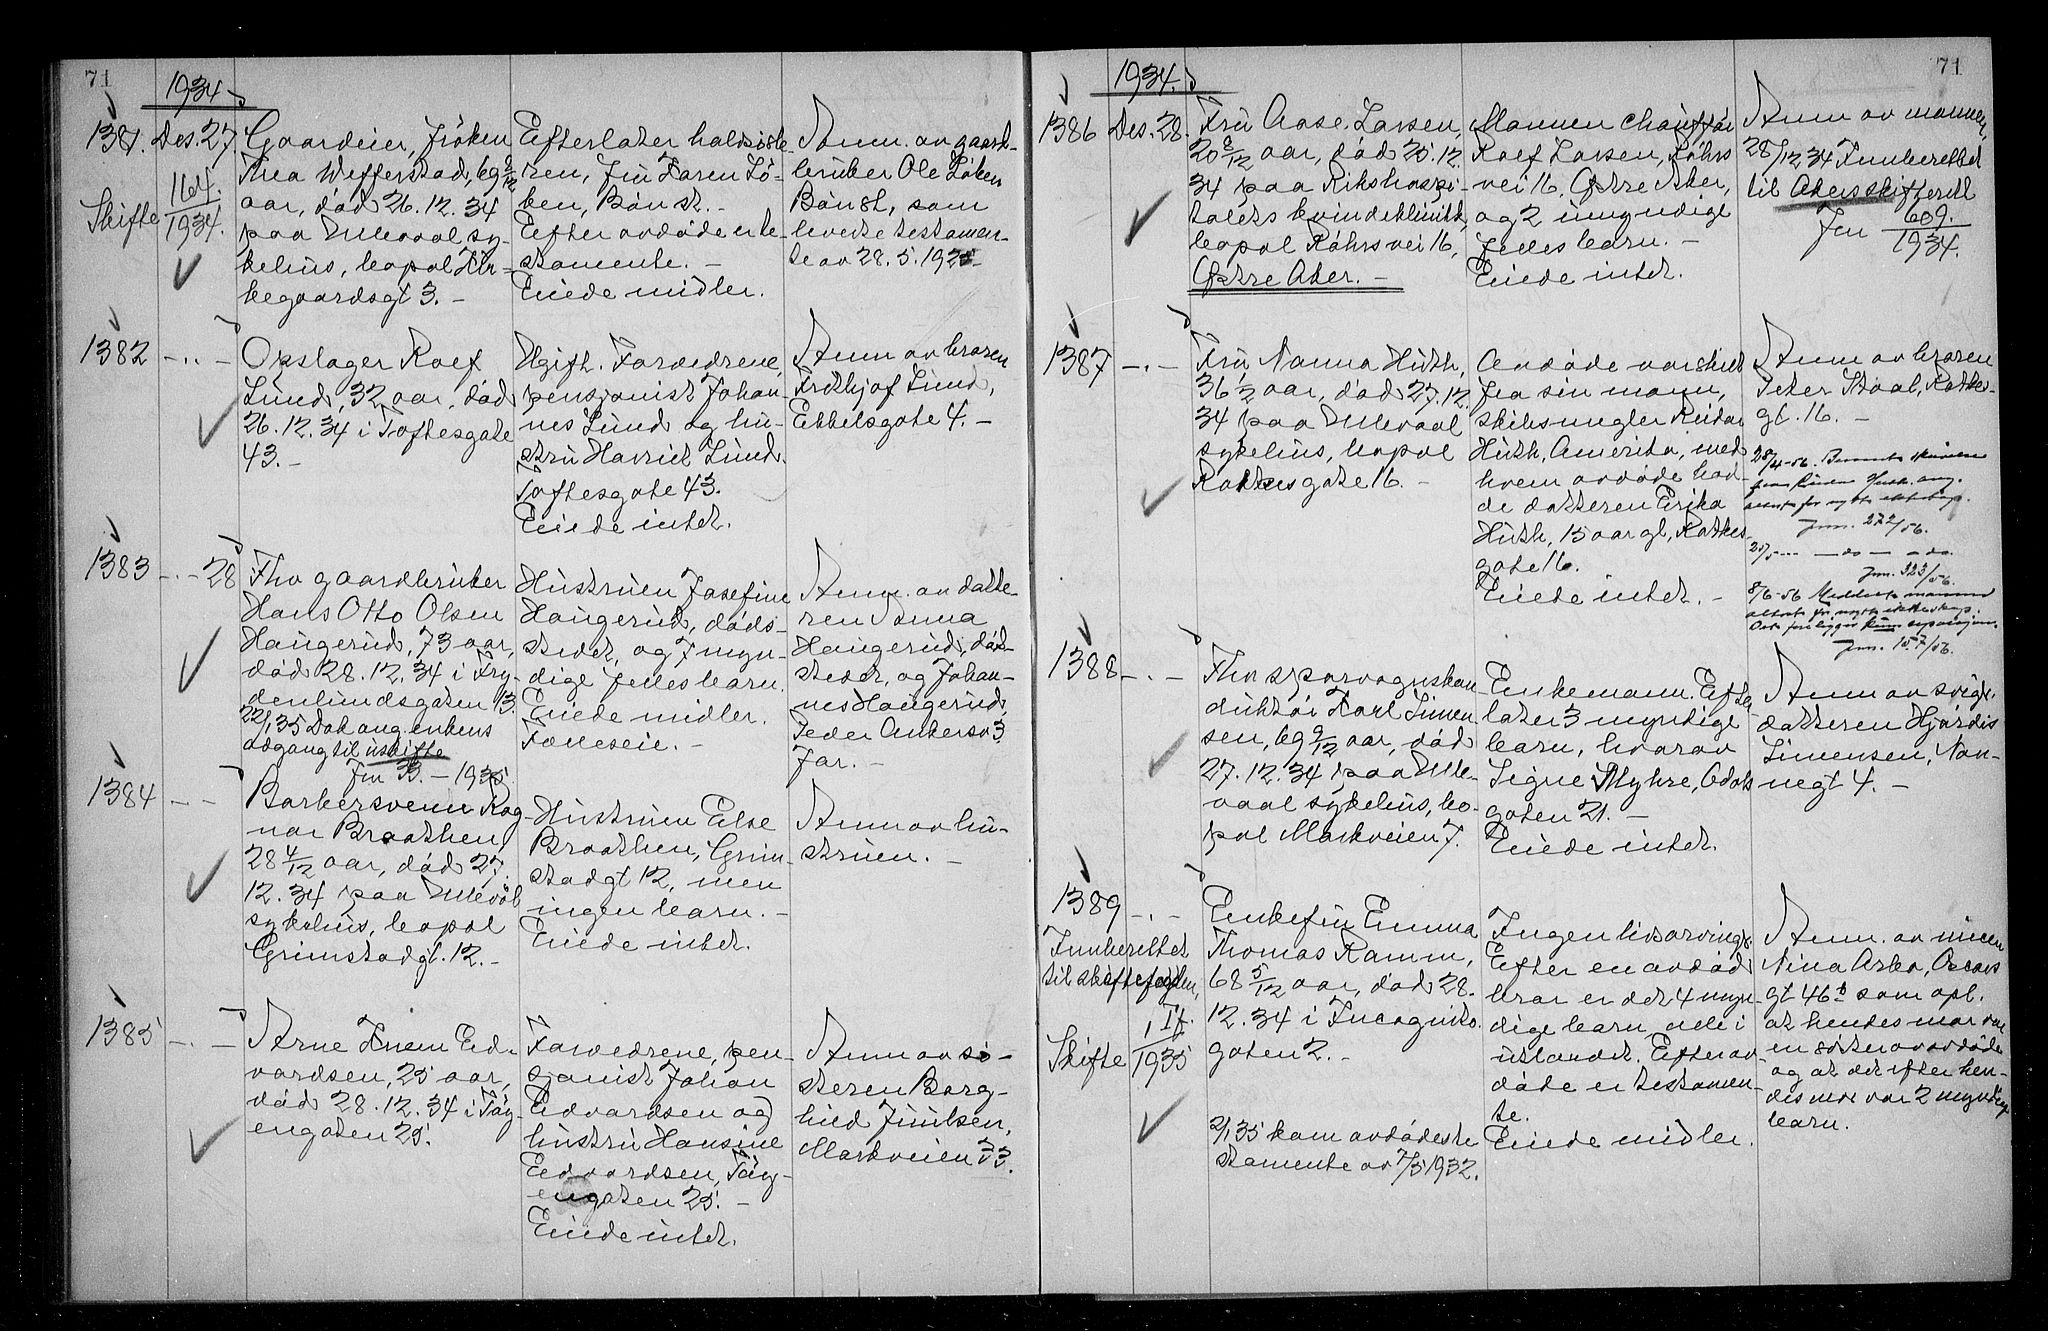 71
1934
1381. Des. 27.
Skifte 164/1934.
Gaardeier, frøken
Thea Wefferstad, 69 9/12
aar, død 26.12.34
paa Ullevaal sy-
kehus, bopol Kir-
kegaardsgt 3. -
Efterlater halvsøste-
ren, fru Karen Lø-
ken, Bøn st. -
Efter avdøde er te-
stamente. -
Eiede midler.
Anm. av gaard-
bruker Ole Løken
Bøn st, som
leverte testamen-
te av 28.5.1925
1382 -..-
Opslager Rolf
Lund, 32 aar, død
26.12.34 i Toftesgate
43. -
Ugift. Forældrene,
pensjonist Johan-
nes Lund og hu-
stru Harriet Lund.
Toftesgate 43.
Eiede intet.
Anm av broren
Fridtjof Lund,
Ebbelsgate 4. -
1383 -.- 28
Fhv gaardbruker
Hans Otto Olsen
Haugerud, 73 aar,
død 28.12.34 i Fry-
denlundsgaten 13.
22/1 35 Dok ang. enkens
adgang til uskifte
Jnr 33. - 1935
Hustruen Josefine
Haugerud, døds-
stedet, og 7 myn-
dige felles barn.
Eiede midler.
Felleseie. -
Anm. av datte-
ren Anna
Haugerud, død-
stedet, og Johan-
nes Haugerud,
Peder Ankersv 3,
far. -
1384 - -
Barbersvenn Rag-
nar Braathen,
28 4/12 aar, død 27.
12.34 paa Ullevål
sykehus, bopol
Grimstadgt. 12. -
Hustruen Else
Braathen, Grim-
stadgt 12, men
ingen barn. -
Eiede intet.
Anm av hu-
struen. -
1385 -.-
Arne Ed-
vardsen, 25 aar,
død 28.12.34 i Tøy-
engaten 25.
Forældrene, pen-
sjonist Johan
Edvardsen og
hustru Hansine
Edvardsen, Tøy-
engaten 25. -
Eiede intet.
Anm av sø-
steren Borg-
hild Juulsen,
Markveien 33.
71
1934.
1386 Des. 28.
Fru Aase Larsen,
20 8/12 aar, død 25.12.
34 paa Rikshospi-
talets kvindeklinikk,
bopol Røhrsvei 16,
Østre Aker. -
Mannen chauffør
Rolf Larsen, Røhrs
vei 16, Østre Aker,
og 2 umyndige
felles barn. -
Eiede intet.
Anm av mannen
28/12 34 Innberettet
til Akers skifterett
Jnr 609./1934.
1387 -.-
Fru Nanna Huth,
36 1/2 aar, død 27.12.
34 paa Ullevaal
sykehus, bopol
Rathkes gate 16. -
Avdøde var skilt
fra sin mann,
skibsmegler Reidar
Huth, Amerika, med
hvem avdøde had-
de datteren Erika
Huth, 15 aar gl, Rathkes-
gate 16.
Eiede intet. -
Anm av broren
Peter Staal, Rathkes-
gt. 16. -
28/4-56.
fra Huth. ang.
attest for nytt ekteskap.
Jnr. 272/56.
25/5 --- - do - - do.
Jnr. 323/56.
8/6-56 Meddelt mannen
attest for nytt ekteskap.
Det foreligger kun separasjon.
Jnr. 157/56.
1388 -.-
Fhv sporvognskon
duktør Karl Simen
sen, 69 9/12 aar, død
27.12.34 paa Ulle-
vaal sykehus, bo-
pol Markveien 7.
Enkemann. Efter
later 3 myndige
barn, hvorav
Signe Myhre, Odals
gaten 21. -
Eiede intet.
Anm av sviger-
datteren Hjørdis
Simensen, Nan-
negt 4. -
1389 -.-
Innberettet
til skiftefogden,
Skifte 1 If./1935
Enkefru Emma
Thomas Ramm,
68 5/12 aar, død 28.
12.34 i Incognito
gaten 2. -
2/1 35 kom avdødes te
stamente av 7/5 1932.
Ingen livsarvinger.
Efter en avdød
bror er det 4 myn-
dige barn, alle i
utlandet. Efter av-
døde er testamen-
te.
Eiede midler.
Anm. av niecen
Nina Asbo, Oscars
gt 46 b som opl.
at hendes mor var
en søster av avdøde
og at det efter hen-
des mor var 2 myndige
barn.